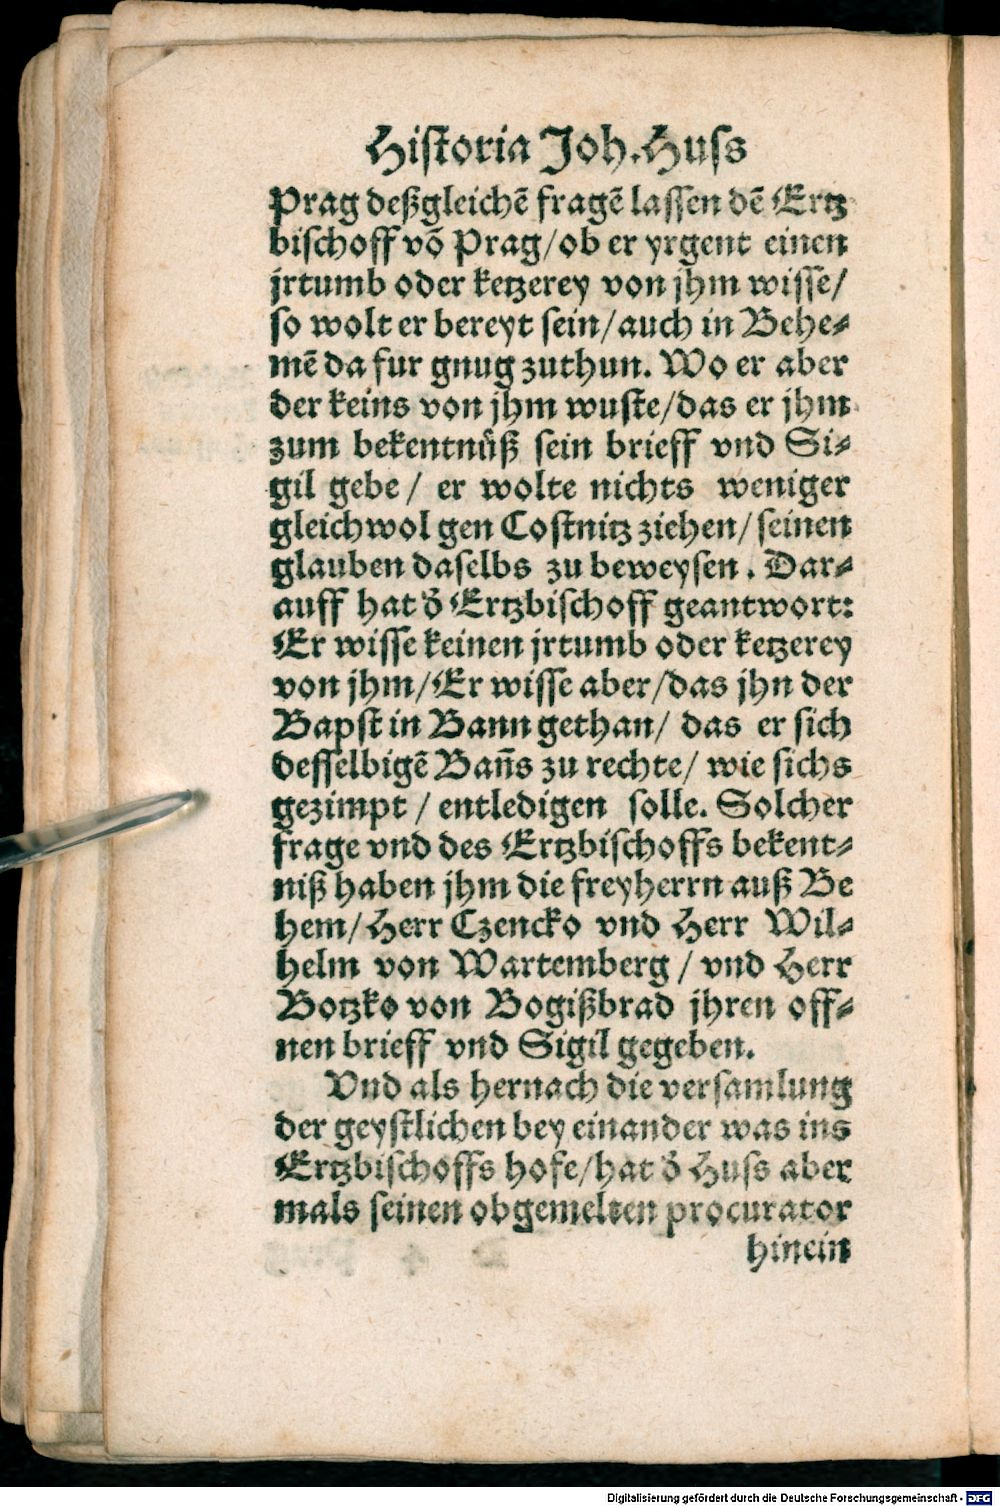 Historia Joh. Huss
Prag deßgleichẽ fragẽ lassen dẽ Ertz
bischoff võ Prag/ob er yrgent einen
jrtumb oder ketzerey von jhm wisse/
so wolt er bereyt sein/auch in Behe⸗
mẽ da fur gnug zuthun. Wo er aber
der keins von jhm wuste/das er jhm
zum bekentnüß sein brieff vnd Si⸗
gil gebe / er wolte nichts weniger
gleichwol gen Costnitz ziehen/seinen
glauben daselbs zu beweysen . Dar⸗
auff hat d̕ Ertzbischoff geantwort:
Er wisse keinen jrtumb oder ketzerey
von jhm/Er wisse aber/das jhn der
Bapst in Bann gethan/ das er sich
desselbigẽ Bañs zu rechte/ wie sichs
gezimpt / entledigen solle. Solcher
frage vnd des Ertzbischoffs bekent⸗
niß haben jhm die freyherrn auß Be
hem/Herr Czencko vnd Herr Wil⸗
helm von Wartemberg / vnd Herr
Botzko von Bogißbrad jhren off⸗
nen brieff vnd Sigil gegeben.
Vnd als hernach die versamlung
der geystlichen bey einander was ins
Ertzbischoffs hofe/hat d̕ Huss aber
mals seinen obgemelten procurator
hinein
Digitalisierung gefördert durch die Deutsche Forschungsgemeinschaft - DFG